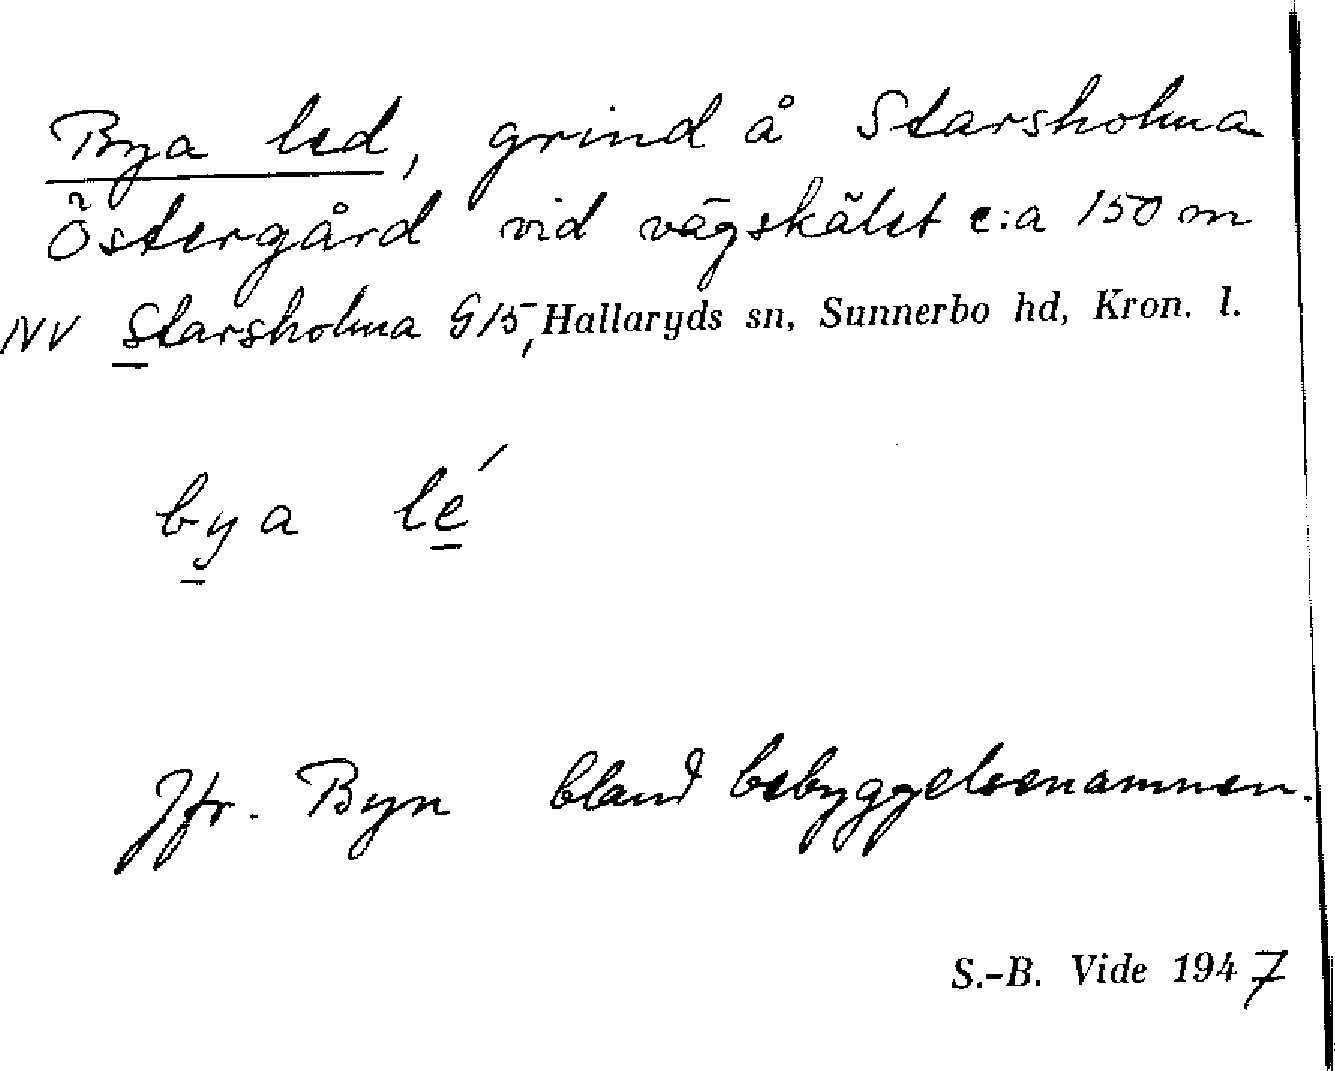 Bya led, grind å Starsholma
Östergård vid vägskälet c:a 150 m
NV Starsholma G15, Hallaryds sn, Sunnerbo hd, Kron. l.
bya lé
Jfr. Byn bland bebyggelsenamnen.
S.-B. Vide 1947